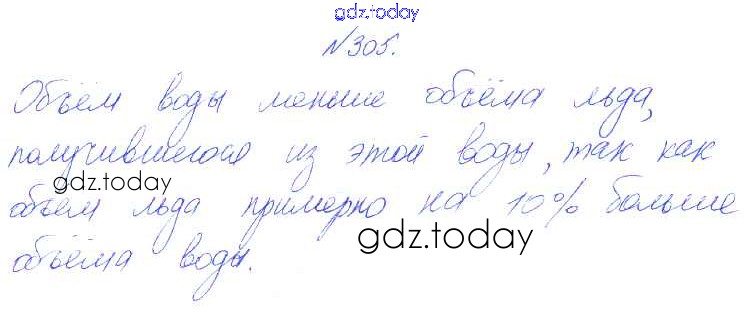 gdz.today
№305.
Объём воды меньше объёма льда,
получившегося из этой воды, так как
gdz.today
объём льда примерно на 10% больше
gdz.today
объёма воды.